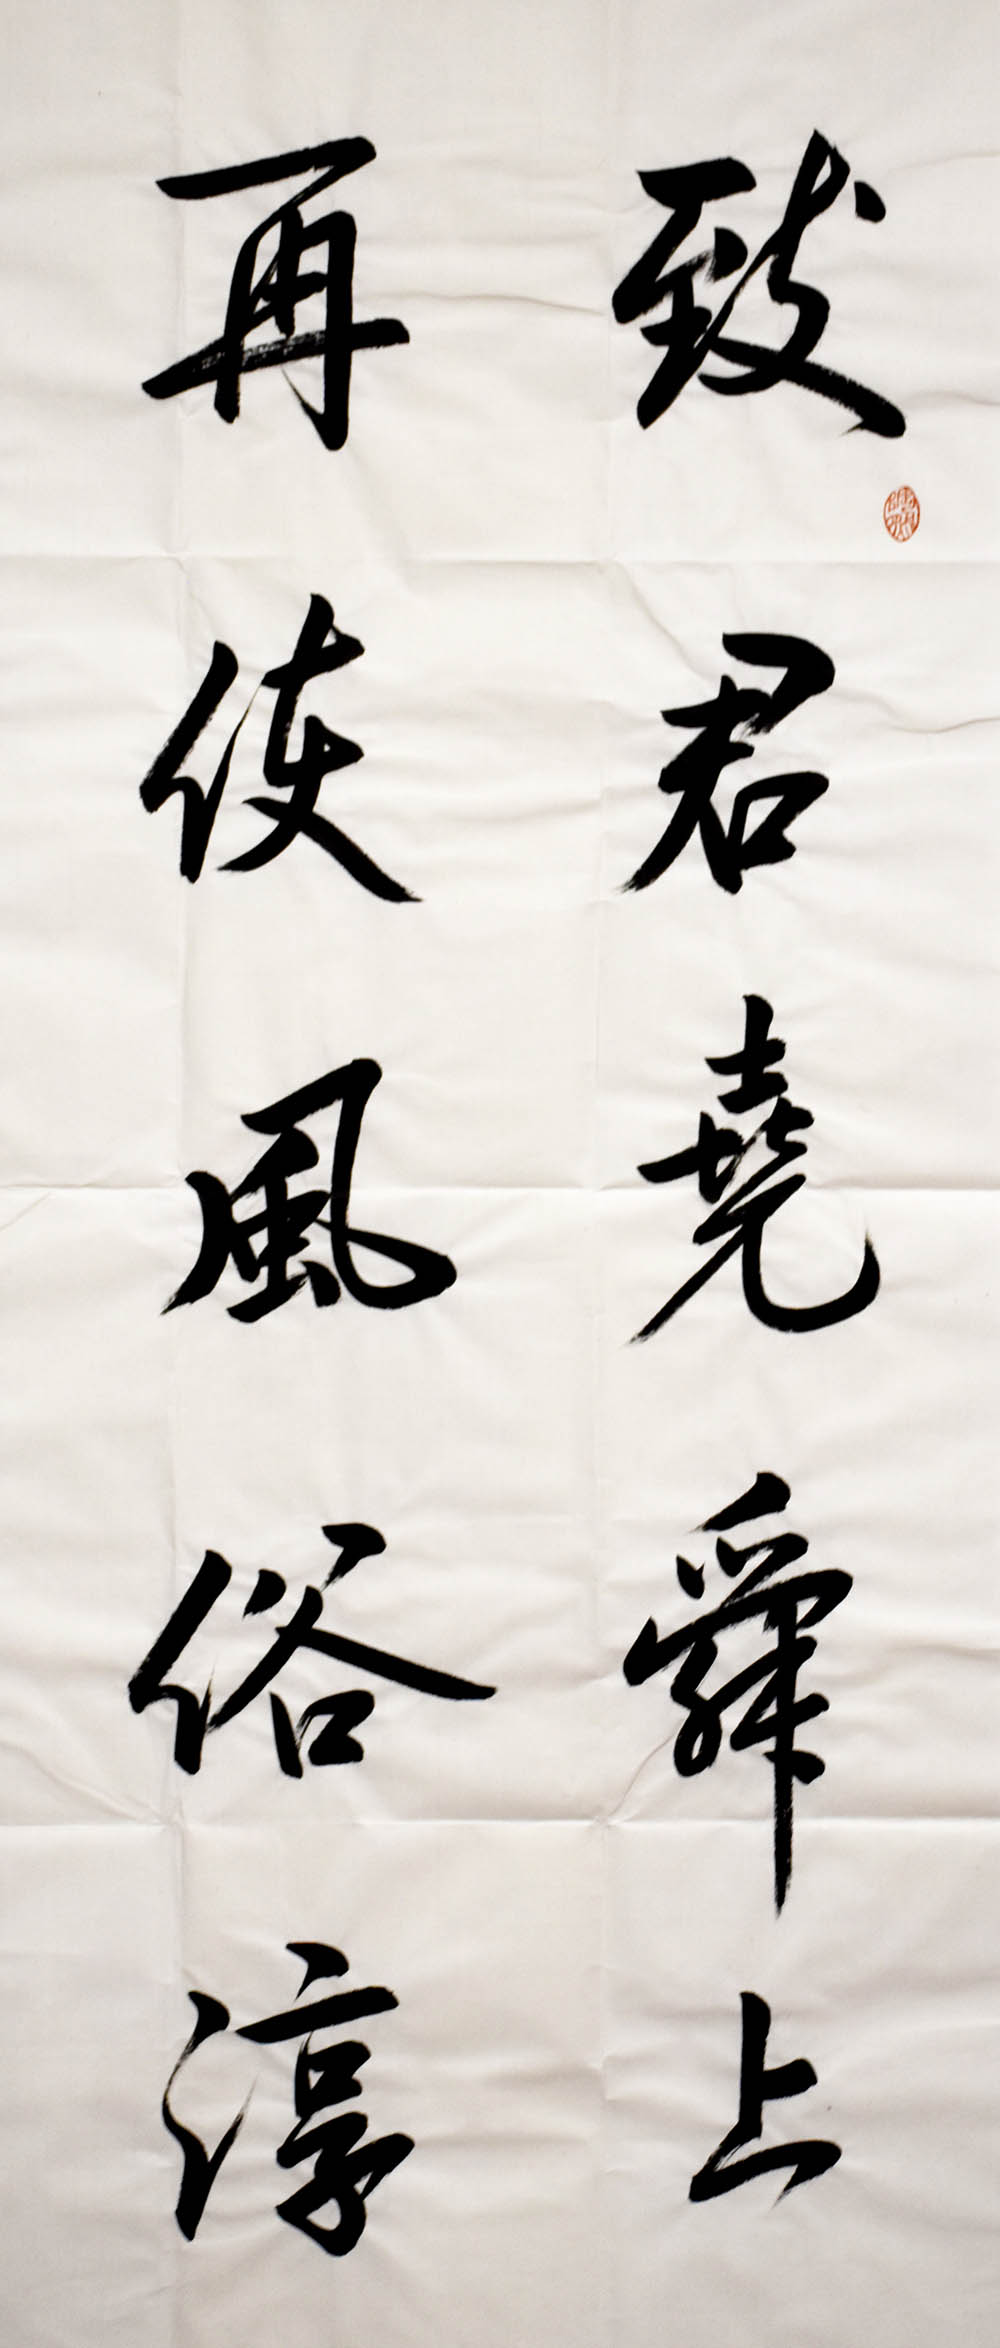 致君堯舜上
再使風俗淳